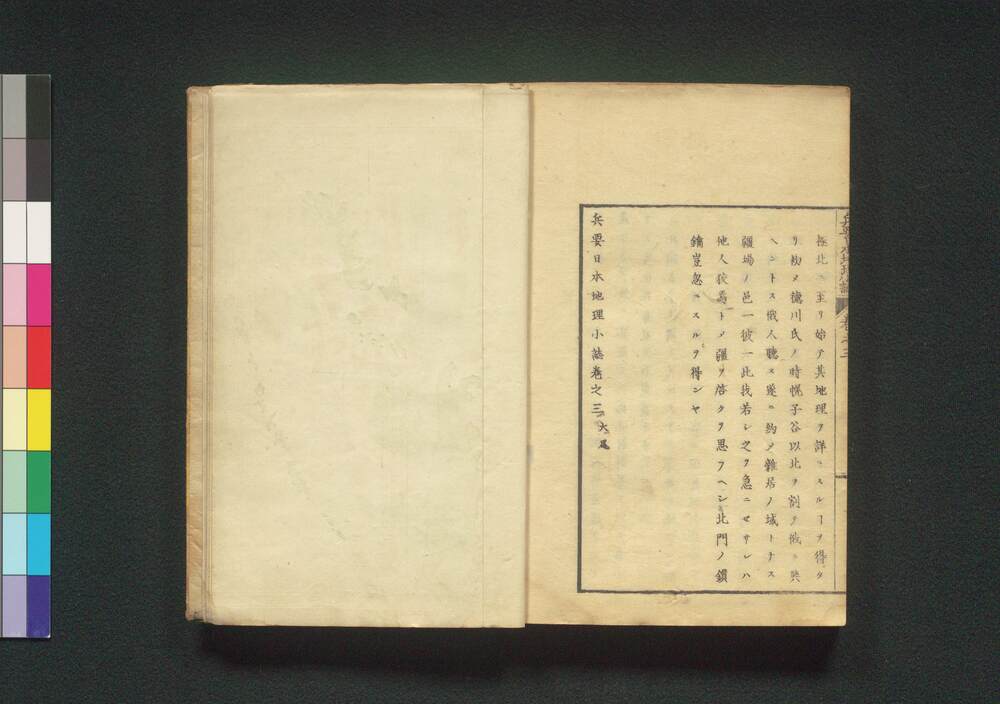 兵要日本地理小誌 卷之三
極北ニ至リ始テ其地理ヲ詳ニスルヿヲ得タ
リ初メ德川氏ノ時幌子谷以北ヲ割テ俄ニ與
ヘントス俄人聽ス遂ニ約メ雜居ノ域トナス
疆場ノ邑一彼一此我若シ之ヲ急ニセサレハ
他人狡焉トメ疆ヲ啓クヲ思フヘシ北門ノ鎖
鑰豈忽ニスルヲ得ンヤ
兵要日本地理小誌卷之三大尾